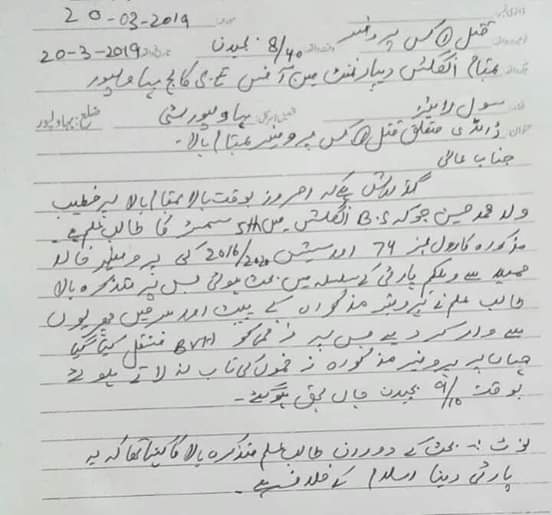 20-03-2019
قتل ① کس پروفیسر
20-3-2019 8/40 بجیدن
بمقام انگلش ڈیپارٹمنٹ مین آفس S.E کالج بہاولپور
سول لائن بہاولپور سٹی ضلع: بہاولپور
ڈائری متعلق قتل ① کس پروفیسر بمقام بالا۔
جناب عالی
گذارش ہے کہ امروز بوقت بالا بمقام بالا پر خطیب
ولد محمد حسین جو کہ B.S انگلش میں 5th سمسٹر کا طالب علم ہے۔
مذکورہ کا رول نمبر 74 اور سیشن 2016/2020 کی پروفیسر خالد
حمید سے ویلکم پارٹی کے سلسلہ میں بحث ہوئی جس پر متذکرہ بالا
طالب علم نے پروفیسر مذکوران کے پیٹ اور سر میں چھریوں
سے وار کر دیے جس پر زخمی کو BVH منتقل کیا گیا
جہاں پر پروفیسر مذکورہ زخموں کی تاب نہ لاتے ہوئے
بوقت 9/10 بجیدن جاں بحق ہو گئے۔
نوٹ :- بحث کے دوران طالب علم متذکرہ بالا کا کہنا تھا کہ یہ
پارٹی دینا اسلام کے خلاف ہے۔